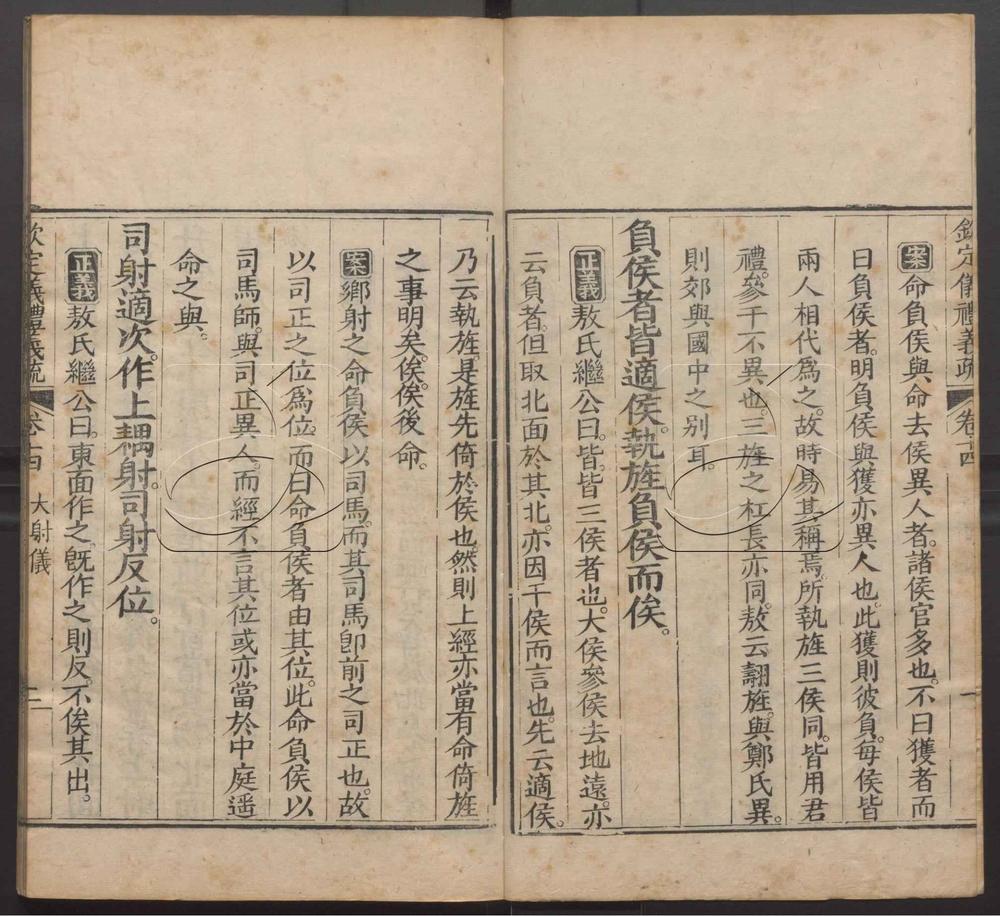 欽定儀禮義疏 卷十四 一
案命負侯與命去侯異人者。諸侯官多也。不曰獲者而
曰負侯者。明負侯與獲亦異人也。此獲則彼負。每侯皆
兩人相代爲之。故時易其稱焉。所執旌三侯同。皆用君
禮。參干不異也。三旌之杠長亦同。敖云翿旌。與鄭氏異。
則郊與國中之別耳。
負侯者皆適侯。執旌負侯而俟。
正義敖氏繼公曰。皆。皆三侯者也。大侯參侯去地遠。亦
云負者。但取北面於其北。亦因干侯而言也。先云適侯。
乃云執旌。是旌先倚於侯也。然則上經亦當有命倚旌
之事明矣。俟。俟後命。
案鄉射之命負侯。以司馬。而其司馬卽前之司正也。故
以司正之位爲位。而曰命負侯者由其位。此命負侯以
司馬師。與司正異人。而經不言其位。或亦當於中庭遥
命之與。
司射適次。作上耦射。司射反位。
正義敖氏繼公曰。東面作之。旣作之則反。不俟其出。
欽定儀禮義疏 卷十四 大射儀 二